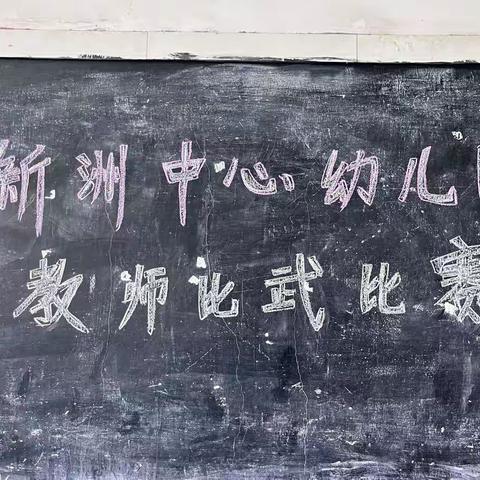 新洲中心幼儿
教师比武比赛